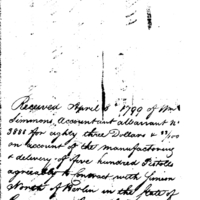 Received April 8th 1799 of Wm
Simmons, Accountant a Warrant No
3888 for eighty three Dollars & 33/100
on account of the manufactoring
& delivery of five hundred Pistols
agreeably to Contract with Simeon
North of Berlin in the State of